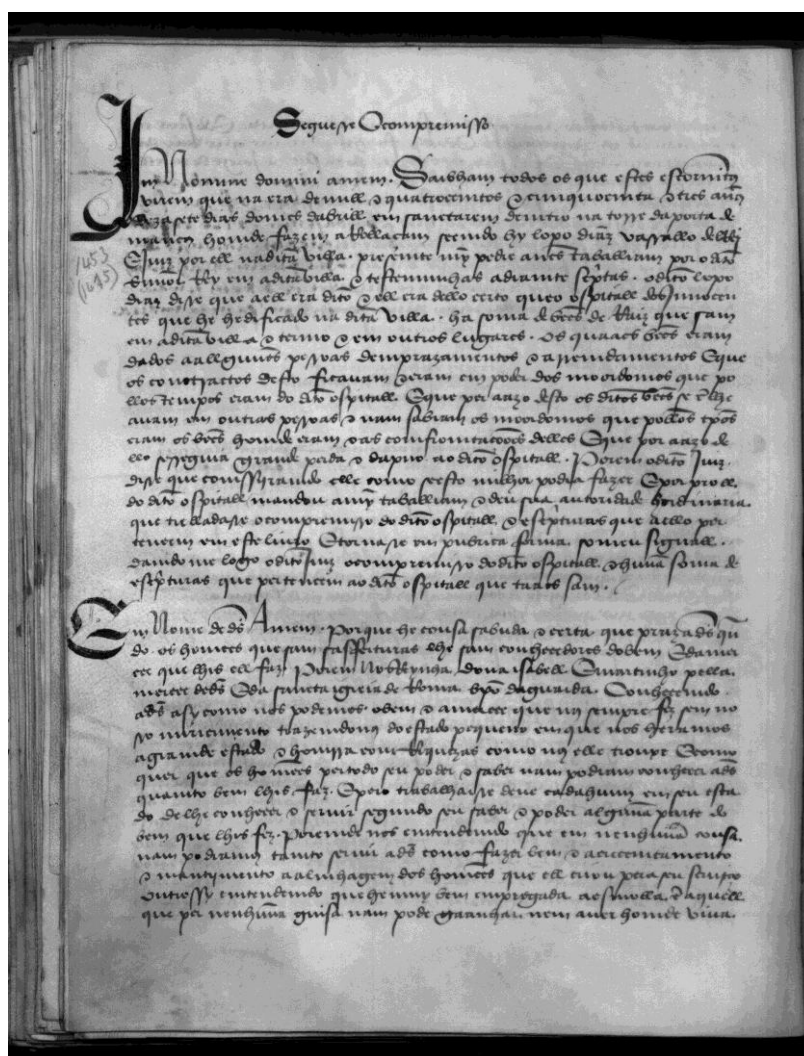 Seguesse Ocompremisso
Im Nomine domini amem. Saibham todos os que estes estormentos
virem que na era de mill & quatrocemtos & cimquoemta & tres annos
dezasete dias do mes dabrill em sanctarem demtro na torre da porta de
homde fazem a Rollaçam seemdo hy lopo diaz vassallo delRej
& Juiz por ell na dita villa. presemte mym pedre anes taballiam por o dito
Senhor Rey em a dita villa. & testemunhas adiamte scprtas. o dito lopo
1453
(1415)
diaz disse que a ell era dito & ell era dello certo que o ospitall dos Innocen
tes que he hedificado na dita villa. ha soma de bees de Raiz que sam
em a dita villa & termo & em outros lugares. Os quaaes bees eram
dados a allguums pessoas demprazamentos & arremdamentos & que
os comtractos desto ficauam & eram em poder dos moordomos que po
llos tempos eram do dito ospitall. & que per aazo desto os ditos bees se
auam em outras pessoas & nam sabiam os moordomos que pollos tpos
eram os bees homde eram & as comfromtaçooes delles & que por aazo de
llo sesseguia gramde perda & dapno ao dito ospitall. Porem o dito Juiz.
disse que comssiramdo elle como se esto milhor podia fazer & por proll.
do dito ospitall mandou a mym taballiam & deu sua autoridade hordinaria.
que trelladasse o compremisso do dito ospitall. & escpturas que a ello per
temcem em este liuro & tornasse em pubrica forma. so meu signall.
damdo me logo o dito Juiz o compremisso do dito ospitall. & huma soma de
escpturas que pertemcem ao dito ospitall que taaes sam.
Em Nome de ds Amem. Porque he cousa sabuda & certa que praz a ds quan
do. os homees que sam sas feituras lhe sam conhecedores do bem & da mer
cee que lhis ell faz. Porem Nos Reynha. dona isabell & martinho pella.
mercee de ds & da sancta igreia de Roma. bpo da guarda. Conhecemdo.
a ds asy como nos podemos. o bem & a mercee que nos sempre fez sem no
sso mericimento trazemdonos do estado pequeno em que nos heramos
a gramde estado & homrra com Riquezas como nos elle trouxe & como
quer que os homees per todo seu poder & saber nam podiam conhecer a ds
quamto bem lhis faz. & pero trabalharse deue cada huum em seu esta
do de lhe conhecer & seruir segundo seu saber & poder alguma parte do
bem que lhis fez. Poremde nos emtendemdo que em nenhuma cousa.
nam podiamos tamto seruir a ds como fazer bem & acrecemtamento
& mamtijmento a a linhagem dos homees que ell criou pera seu seruiço
Outrossy emtendemdo que he muy bem empregada a esmolla. a aquell
que per nenhuma guisa nam pode gaanhar. nem auer homde viua.